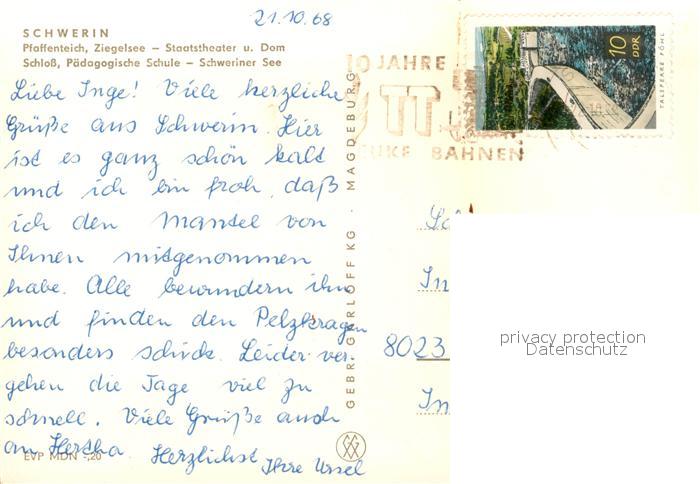 21.10.68
SCHWERIN
Pfaffenteich, Ziegelsee – Staatstheater u. Dom
Schloß, Pädagogische Schule – Schweriner See
Liebe Inge! Viele herzliche
Grüße aus Schwerin. Hier
ist es ganz schön kalt
und ich bin froh, daß
ich den Mantel von
Ihnen mitgenommen
habe. Alle bewundern ihn
und finden den Pelzkragen
besonders schick. Leider ver-
gehen die Tage viel zu
schnell. Viele Grüße auch
an Hertha
Herzlichst Ihre Ursel
EVP MDN -,20
GEBR. GARLOFF KG · MAGDEBURG
10 JAHRE
TT
BAHNEN
10 DDR
TALSPERRE PÖHL
In
8023
In
privacy protection
Datenschutz